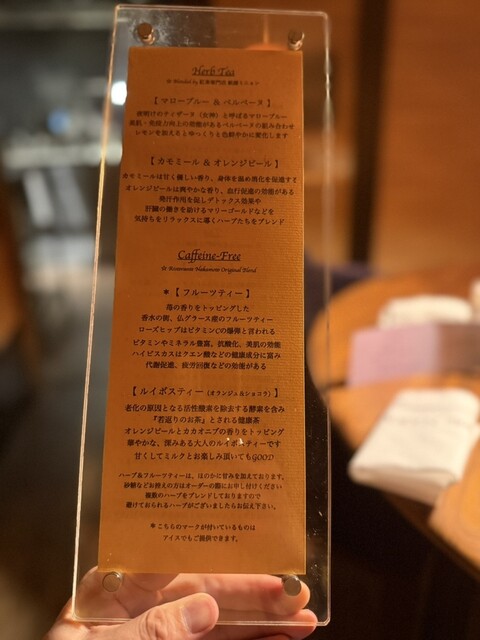 Herb Tea
☆ Blended by 紅茶専門店
【 マローブルー & バルベーヌ 】
夜明けのティザーヌ（女神）と呼ばれるマローブルー
美肌・免疫力向上の効能があるバルベーヌの組み合わせ
レモンを加えるとゆっくりと色鮮やかに変化します
【 カモミール & オレンジピール 】
カモミールは甘く優しい香り、身体を温め消化を促進する
オレンジピールは爽やかな香り、血行促進の効能がある
発汗作用を促しデトックス効果や
肝臓の働きを助けるマリーゴールドなどを
気持ちをリラックスに導くハーブたちをブレンド
Caffeine-Free
☆ Ristorante Nakamoto Original Blend
＊【 フルーツティー 】
苺の香りをトッピングした
香水の街、仏グラース産のフルーツティー
ローズヒップはビタミンCの爆弾と言われる
ビタミンやミネラル豊富、抗酸化、美肌の効能
ハイビスカスはクエン酸などの健康成分に富み
代謝促進、疲労回復などの効能がある
【 ルイボスティー（オランジュ&ショコラ）】
老化の原因となる活性酸素を除去する酵素を含み
『若返りのお茶』とされる健康茶
オレンジピールとカカオニブの香りをトッピング
華やかな、深みある大人のルイボスティーです
甘くしてミルクとお楽しみ頂いてもGOOD
ハーブ&フルーツティーは、ほのかに甘みを加えております。
砂糖などお控えの方はオーダーの際にお申し付けください
複数のハーブをブレンドしておりますので
避けておられるハーブがございましたらお伝え下さい。
＊こちらのマークが付いているものは
アイスでもご提供できます。